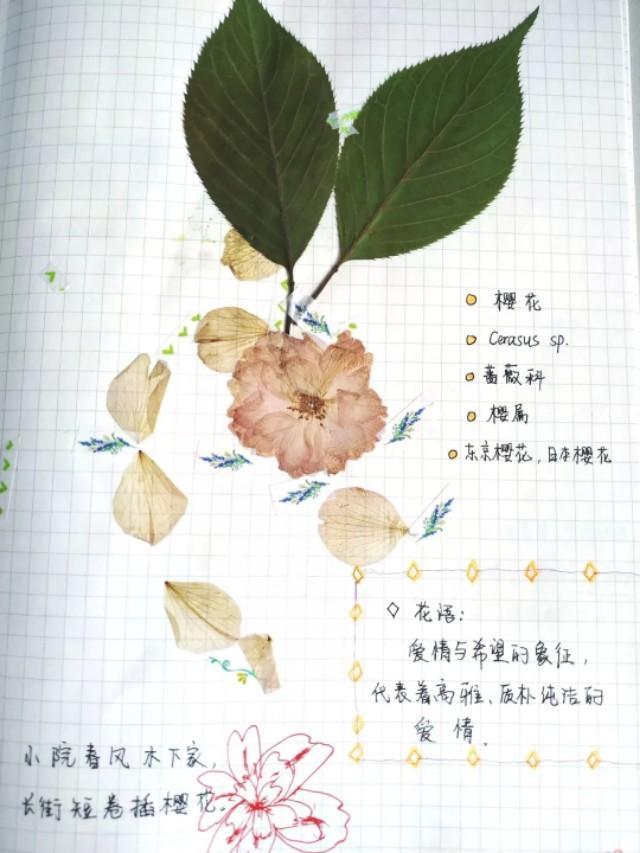 樱花
Cerasus sp.
蔷薇科
樱属
东京樱花,日本樱花
花语:
爱情与希望的象征,
代表着高雅、质朴纯洁的
爱情.
小院春风木下家,
长街短巷插樱花.